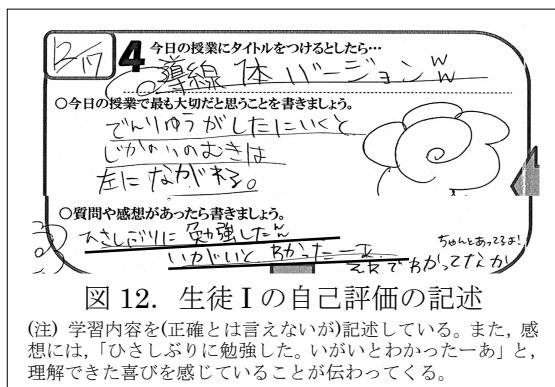 12/17
4 今日の授業にタイトルをつけるとしたら…
導線 体 バージョン ww
○今日の授業で最も大切だと思うことを書きましょう。
でんりゅうがしたにいくと
じかいのむきは
左にながれる。
○質問や感想があったら書きましょう。
ひさしぶりに勉強した
いがいと わかったーあ
ちゃんとあってるよ!
図 12. 生徒 I の自己評価の記述
(注) 学習内容を(正確とは言えないが)記述している。また、感
想には、「ひさしぶりに勉強した。いがいとわかったーあ」と、
理解できた喜びを感じていることが伝わってくる。